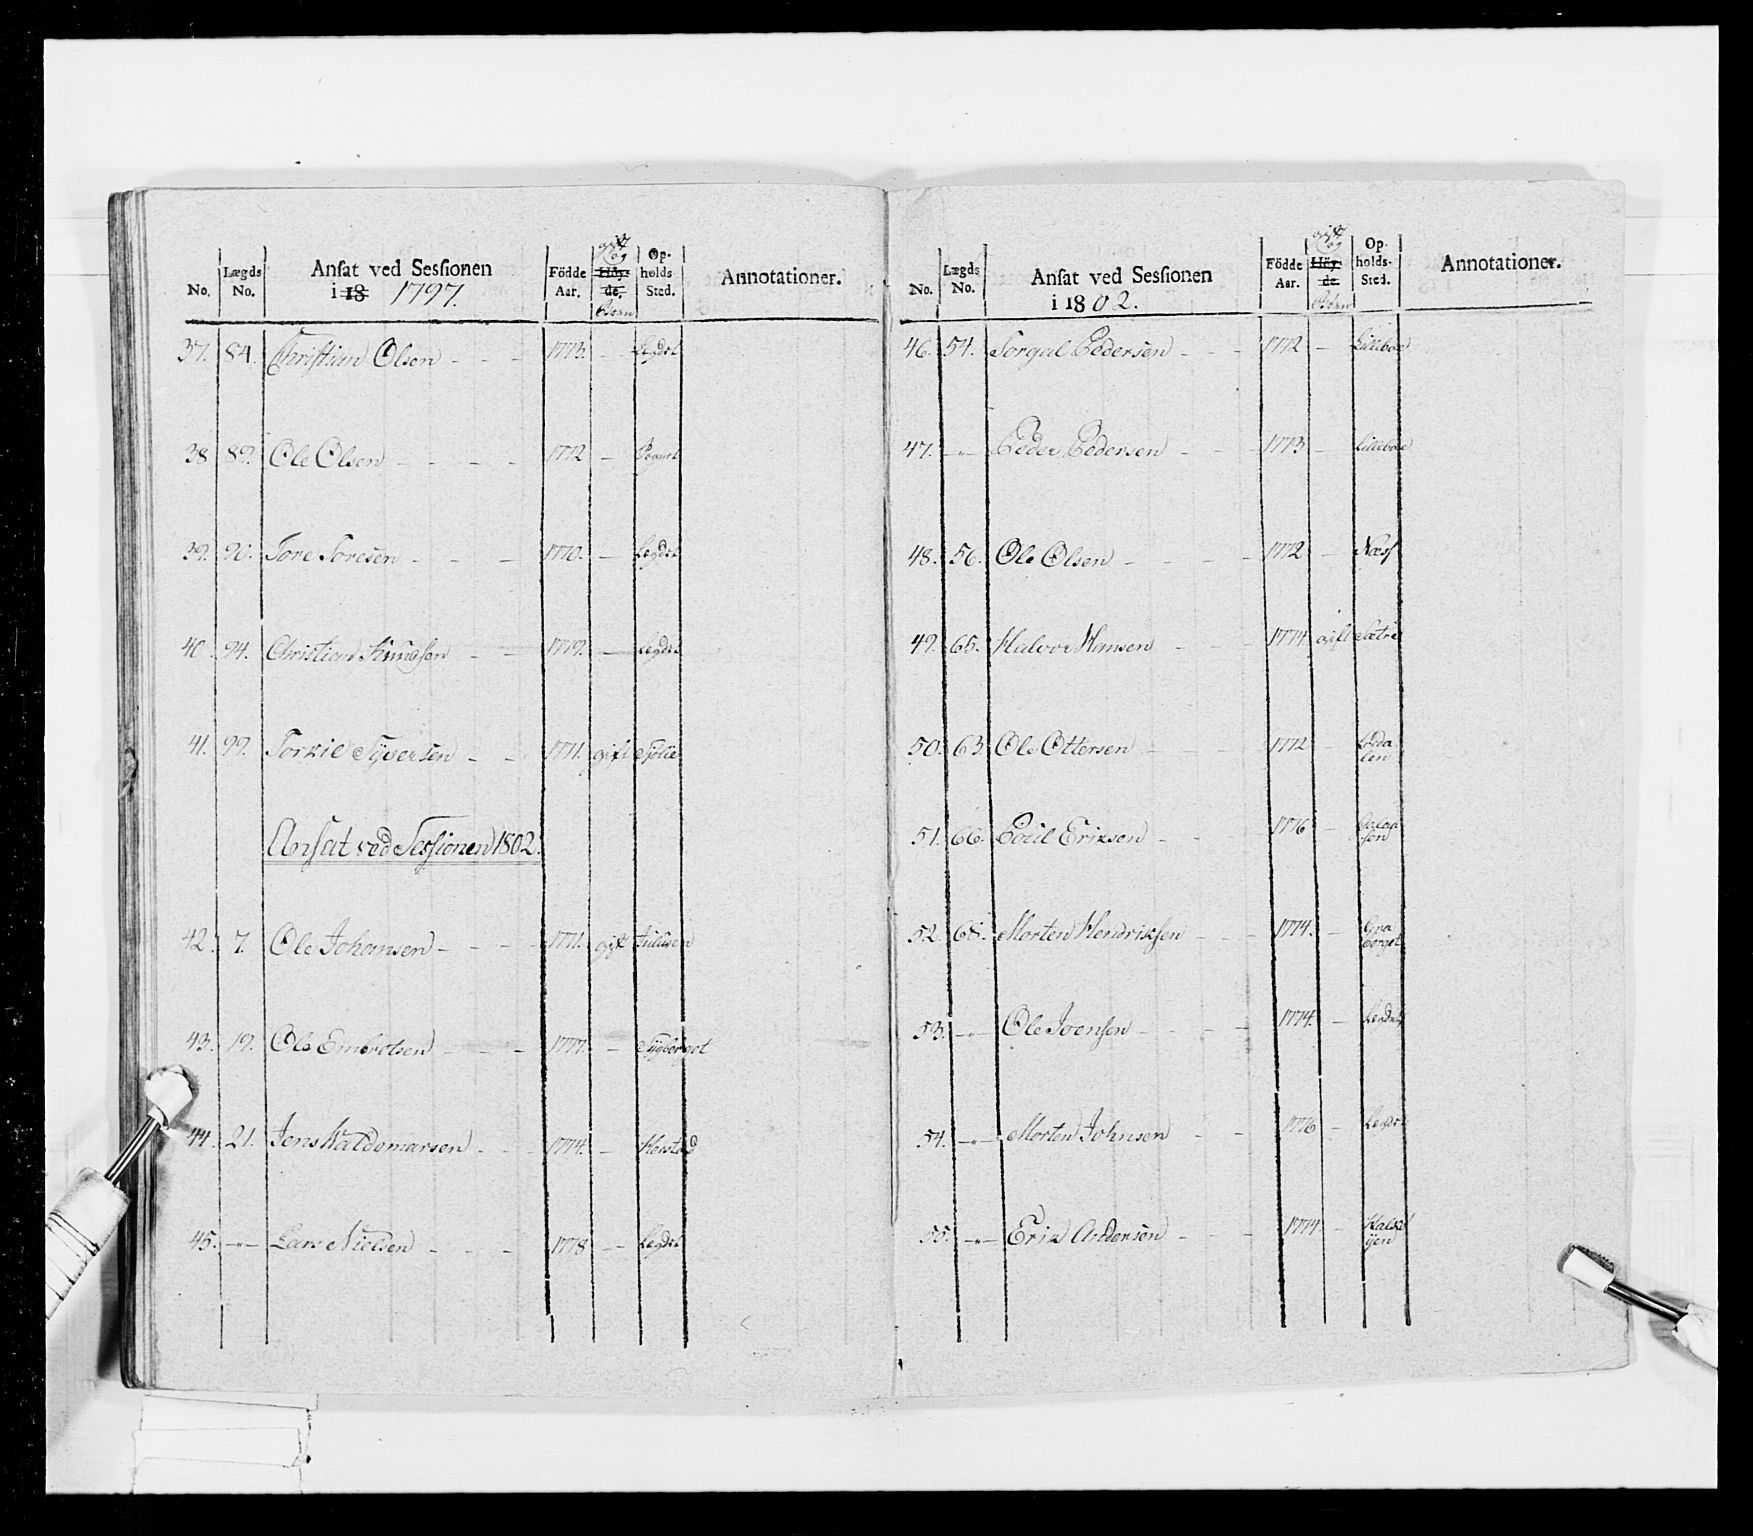 No. Lægds No. Ansat ved Sessionen i 18 1797. Födde Aar. gift og Höyde. Börn Op-holds-Sted. Annotationer.
37. 84. Christian Olsen - - - 1773. - Legdet
38 89. Ole Olsen - - - - 1772 -
39. 90. Tore Toresen - - - 1770. - Legdet
40. 94. Christian Knudsen - - 1779. - Legdet
41. 99. Torkie Syversen - - 1771. gift
Ansat ved Sessionen 1802.
42. 7. Ole Johansen - - - - 1771. gift Julusen
43. 19. Ole Emertsen - - - 1777. - Sygberget
44. 21. Jens Waldemarsen - - 1774. - Herstad
45. -"- Lars Nielsen - - - 1778 - Legdet
No. Lægds No. Ansat ved Sessionen i 1802. Födde Aar. gift og Höyde. Börn Op-holds-Sted. Annotationer.
46. 54. Torgal Pedersen - - 1772 - Lilleboe
47. -"- Peder Pedersen - - 1773 - Lilleboe
48. 56. Ole Olsen - - - - 1772 - Næss
49. 65. Halvor Hansen - - - 1774 gift Sætre
50. 63 Ole Ottersen - - - 1772
51. 66. Bottil Eriksen - - 1776 -
52. 68. Morten Hendriksen - - 1774. - Graberget
53. -"- Ole Joensen - - - - 1774. -
54. -"- Morten Johnsen - - 1776 - Legdet
55. -"- Erik Andersen - - - 1774 -